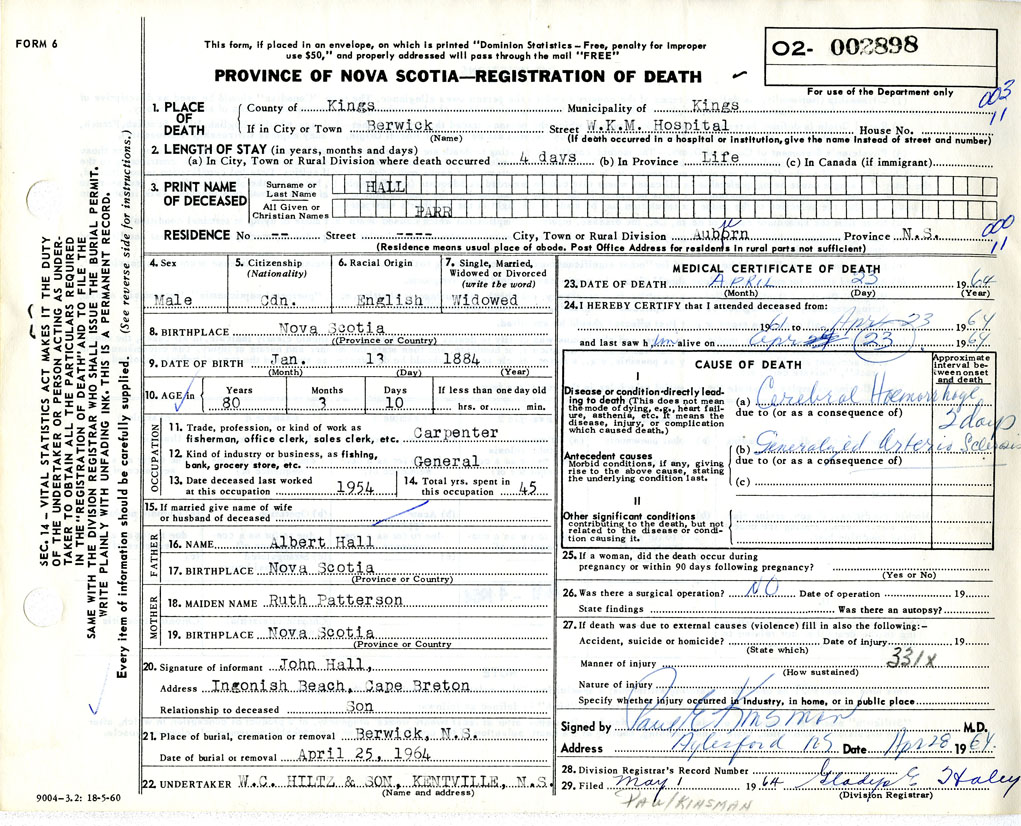 FORM 6
This form, if placed in an envelope, on which is printed "Dominion Statistics – Free, penalty for improper
use $50," and properly addressed will pass through the mail "FREE"
PROVINCE OF NOVA SCOTIA—REGISTRATION OF DEATH
02- 002898
For use of the Department only
003
11
1. PLACE OF DEATH
County of Kings Municipality of Kings
If in City or Town Berwick Street W.K.M. Hospital House No.
(Name) (If death occurred in a hospital or institution, give the name instead of street and number)
2. LENGTH OF STAY (in years, months and days)
(a) In City, Town or Rural Division where death occurred 4 days (b) In Province Life (c) In Canada (if immigrant)
3. PRINT NAME OF DECEASED
Surname or Last Name HALL
All Given or Christian Names PARR
000
11
RESIDENCE No -- Street ---- City, Town or Rural Division Auborn Province N.S.
(Residence means usual place of abode. Post Office Address for residents in rural parts not sufficient)
4. Sex
Male
5. Citizenship (Nationality)
Cdn.
6. Racial Origin
English
7. Single, Married, Widowed or Divorced (write the word)
Widowed
8. BIRTHPLACE Nova Scotia
(Province or Country)
9. DATE OF BIRTH Jan. 13 1884
(Month) (Day) (Year)
10. AGE in
Years Months Days If less than one day old
80 3 10 hrs. or min.
OCCUPATION
11. Trade, profession, or kind of work as
fisherman, office clerk, sales clerk, etc. Carpenter
12. Kind of industry or business, as fishing,
bank, grocery store, etc. General
13. Date deceased last worked at this occupation 1954
14. Total yrs. spent in this occupation 45
15. If married give name of wife
or husband of deceased
FATHER
16. NAME Albert Hall
17. BIRTHPLACE Nova Scotia
(Province or Country)
MOTHER
18. MAIDEN NAME Ruth Patterson
19. BIRTHPLACE Nova Scotia
(Province or Country)
20. Signature of informant John Hall,
Address Ingonish Beach, Cape Breton
Relationship to deceased Son
21. Place of burial, cremation or removal Berwick, N.S.
Date of burial or removal April 25, 1964
22. UNDERTAKER W.C. HILTZ & SON, KENTVILLE, N.S.
(Name and address)
MEDICAL CERTIFICATE OF DEATH
23. DATE OF DEATH APRIL 23 1964
(Month) (Day) (Year)
24. I HEREBY CERTIFY that I attended deceased from:
1961 to Apr 23 1964
and last saw him alive on Apr 23 1964
CAUSE OF DEATH
Approximate interval between onset and death
I
Disease or condition directly leading
to death (This does not mean
the mode of dying, e.g., heart failure,
asthenia, etc. It means the
disease, injury, or complication
which caused death.)
(a) Cerebral Haemorrhage
2 days
due to (or as a consequence of)
Antecedent causes
Morbid conditions, if any, giving
rise to the above cause, stating
the underlying condition last.
(b) Generalized Arterio Sclerosis
due to (or as a consequence of)
(c)
II
Other significant conditions
contributing to the death, but not
related to the disease or condition
causing it.
25. If a woman, did the death occur during
pregnancy or within 90 days following pregnancy?
(Yes or No)
26. Was there a surgical operation? NO Date of operation 19
State findings Was there an autopsy?
27. If death was due to external causes (violence) fill in also the following:–
Accident, suicide or homicide? Date of injury 19
(State which)
331x
Manner of injury
(How sustained)
Nature of injury
Specify whether injury occurred in industry, in home, or in public place
Signed by Paul E Kinsman M.D.
Address Aylesford NS Date Apr 28 1964.
28. Division Registrar's Record Number
29. Filed May 1 1964 Gladys E Haley
(Division Registrar)
PAUL KINSMAN
9004-3.2: 18-5-60
SEC. 14 – VITAL STATISTICS ACT MAKES IT THE DUTY
OF THE UNDERTAKER OR PERSON ACTING AS UNDERTAKER
TO OBTAIN ALL THE PARTICULARS REQUIRED
IN THE "REGISTRATION OF DEATH" AND TO FILE THE
SAME WITH THE DIVISION REGISTRAR WHO SHALL ISSUE THE BURIAL PERMIT.
WRITE PLAINLY WITH UNFADING INK. THIS IS A PERMANENT RECORD.
Every item of information should be carefully supplied. (See reverse side for instructions.)